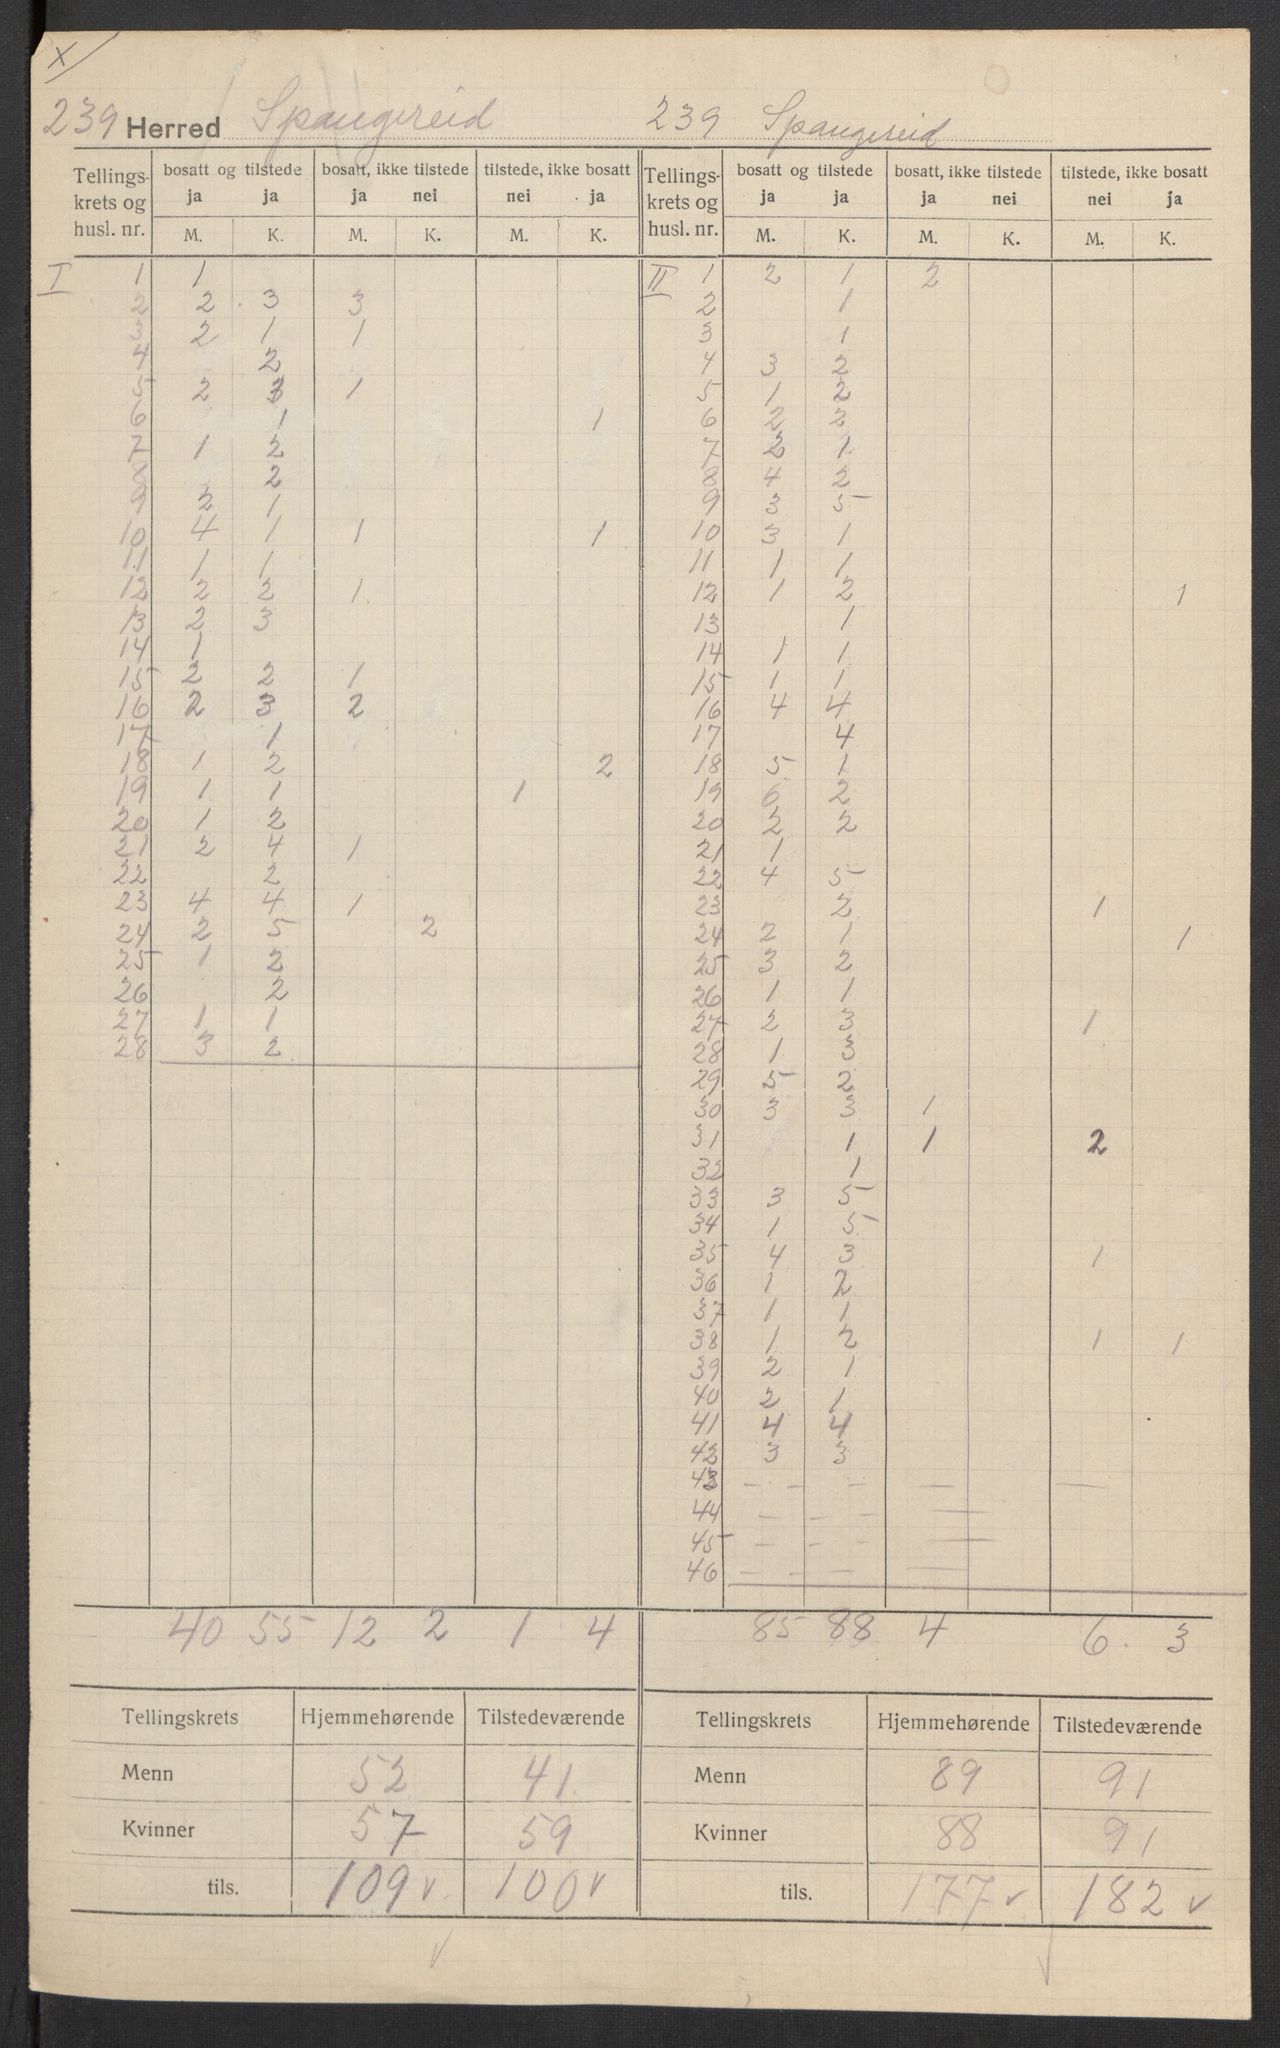 X
239 Herred Spangereid 239 Spangereid
Tellings- krets og husl. nr. | bosatt og tilstede ja ja | bosatt, ikke tilstede ja nei | tilstede, ikke bosatt nei ja | Tellings- krets og husl. nr. | bosatt og tilstede ja ja | bosatt, ikke tilstede ja nei | tilstede, ikke bosatt nei ja
M. K. M. K. M. K. M. K. M. K. M. K.
I
1 1
2 2 3 3
3 2 1 1
4 2
5 2 3 1
6 1 1
7 1 2
8 2
9 2 1
10 4 1 1 1
11 1 1
12 2 2 1
13 2 3
14 1
15 2 2 1
16 2 3 2
17 1
18 1 2 2
19 1 1 1
20 1 2
21 2 4 1
22 2
23 4 4 1
24 2 5 2
25 1 2
26 2
27 1 1
28 3 2
40 55 12 2 1 4
Tellingskrets Hjemmehørende Tilstedeværende
Menn 52 41
Kvinner 57 59
tils. 109 v 100 v
II
1 2 1 2
2 1
3 1
4 3 2
5 1 2
6 2 2
7 2 1
8 4 2
9 3 5
10 3 1
11 1 1
12 1 2 1
13 1
14 1 1
15 1 1
16 4 4
17 4
18 5 1
19 6 2
20 2 2
21 1
22 4 5
23 2 1
24 2 1 1
25 3 2
26 1 1
27 2 3 1
28 1 3
29 5 2
30 3 3 1
31 1 1 2
32 1
33 3 5
34 1 5
35 4 3 1
36 1 2
37 1 1
38 1 2 1 1
39 2 1
40 2 1
41 4 4
42 3 3
43 - - - - -
44 - - - -
45 - - - -
46 - - - -
85 88 4 6 3
Tellingskrets Hjemmehørende Tilstedeværende
Menn 89 91
Kvinner 88 91
tils. 177 v 182 v